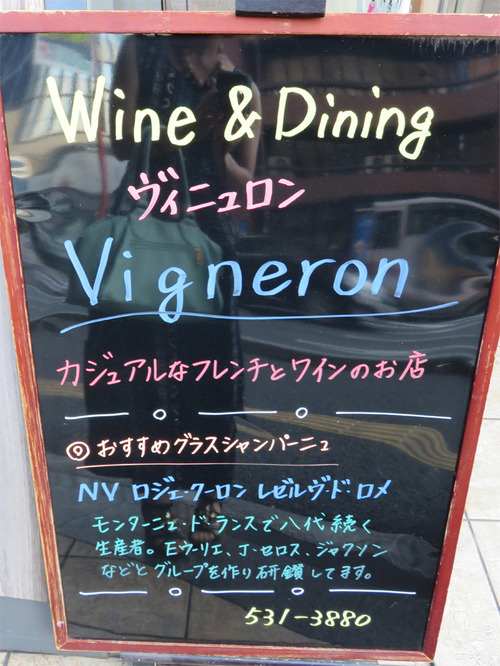 Wine & Dining
ヴィニュロン
Vigneron
カジュアルなフレンチとワインのお店
◎ おすすめグラスシャンパーニュ
NV ロジェ・クーロン レゼルヴ・ド・ロメ
モンターニュ・ド・ランスで八代続く
生産者。E・ウーリエ、J・セロス、ジャクソン
などとグループを作り研鑽してます。
531-3880